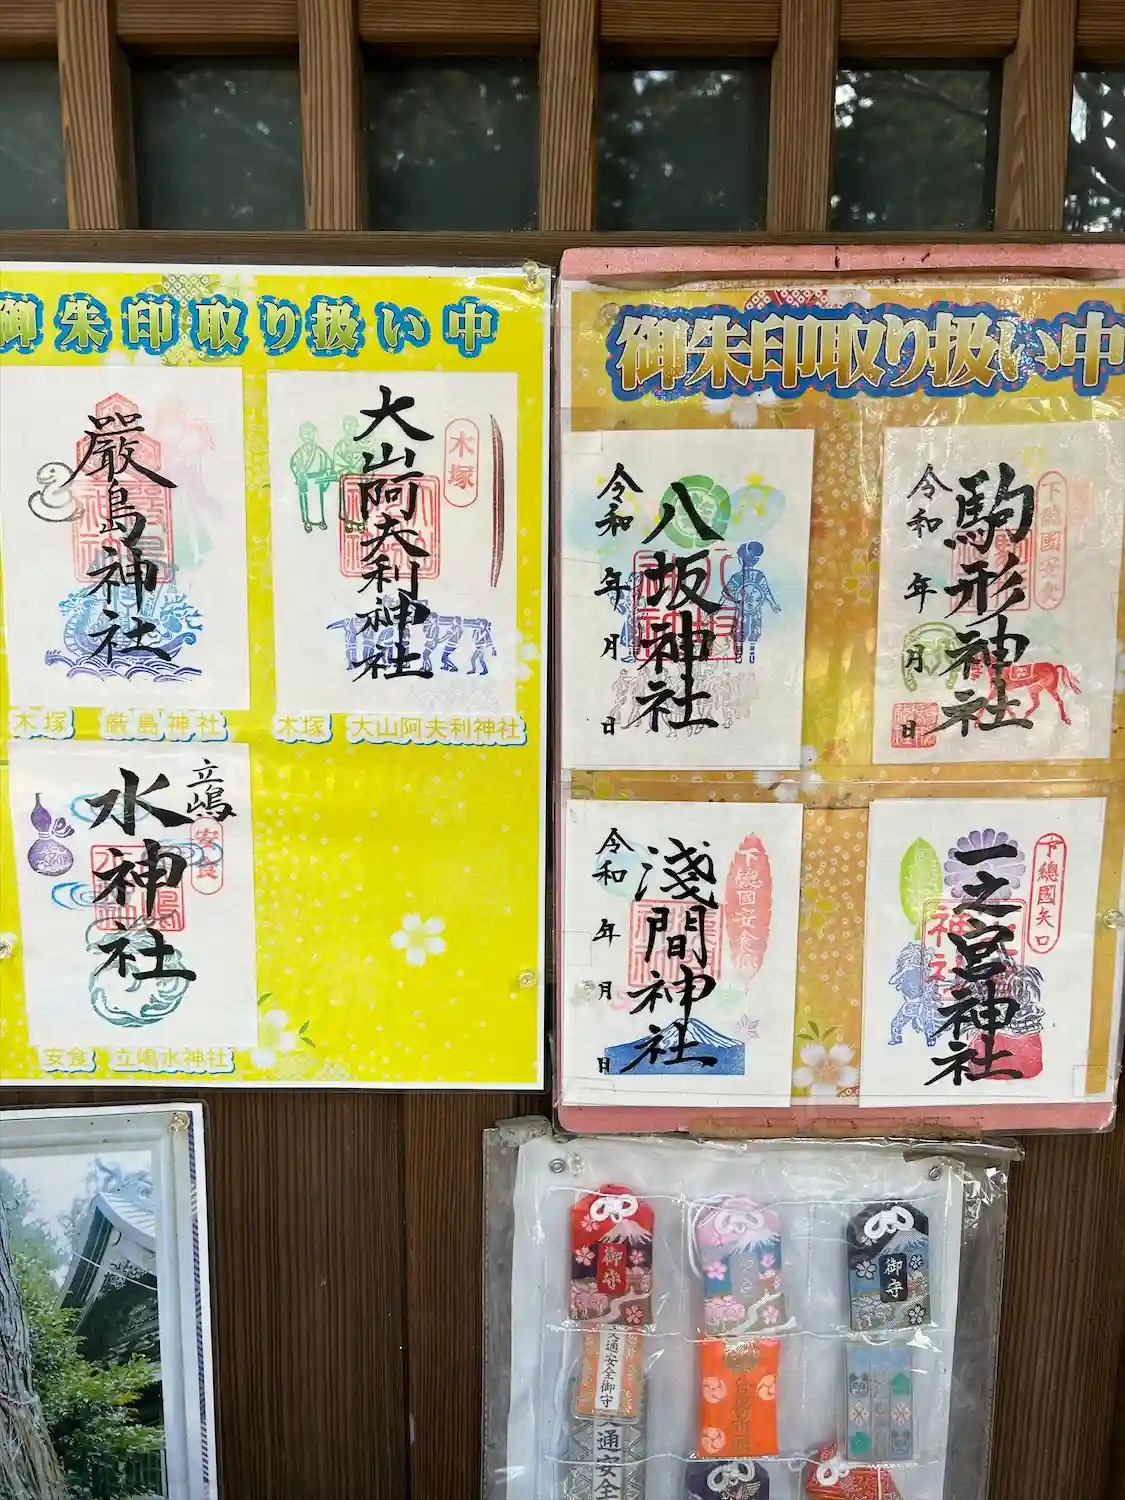 御朱印取り扱い中
厳島神社
木塚
大山阿夫利神社
木塚 厳島神社
木塚 大山阿夫利神社
立嶋
安食
水神社
安食 立嶋水神社
御朱印取り扱い中
令和 年 月 日
八坂神社
下総國安食
駒形神社
令和 年 月 日
下總國安食
淺間神社
令和 年 月 日
下總國矢口
一之宮神社
御守
御守
交通安全御守
交通安全